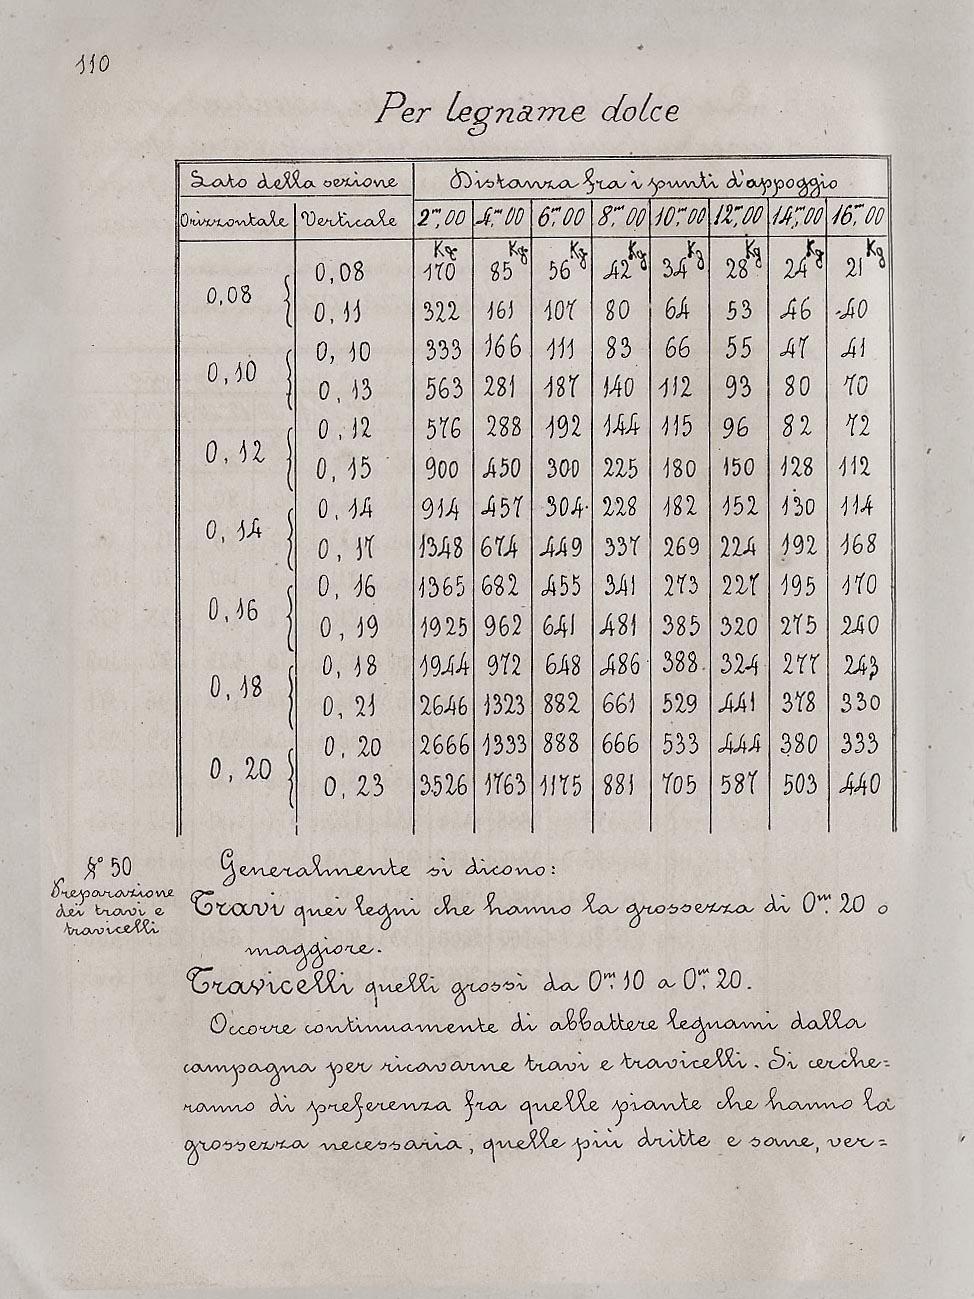 110
Per legname dolce
Lato della sezione Distanza fra i punti d'appoggio
Orizzontale Verticale 2,m00 4,m00 6,m00 8,m00 10,m00 12,m00 14,m00 16,m00
Kg Kg Kg Kg Kg Kg Kg Kg
0,08 0,08 170 85 56 42 34 28 24 21
0,11 322 161 107 80 64 53 46 40
0,10 0,10 333 166 111 83 66 55 47 41
0,13 563 281 187 140 112 93 80 70
0,12 0,12 576 288 192 144 115 96 82 72
0,15 900 450 300 225 180 150 128 112
0,14 0,14 914 457 304 228 182 152 130 114
0,17 1348 674 449 337 269 224 192 168
0,16 0,16 1365 682 455 341 273 227 195 170
0,19 1925 962 641 481 385 320 275 240
0,18 0,18 1944 972 648 486 388 324 277 243
0,21 2646 1323 882 661 529 441 378 330
0,20 0,20 2666 1333 888 666 533 444 380 333
0,23 3526 1763 1175 881 705 587 503 440
§° 50
Preparazione
dei travi e
travicelli
Generalmente si dicono:
Travi quei legni che hanno la grossezza di 0m,20 o
maggiore.
Travicelli quelli grossi da 0m,10 a 0m,20.
Occorre continuamente di abbattere legnami dalla
campagna per ricavarne travi e travicelli. Si cerche=
ranno di preferenza fra quelle piante che hanno la
grossezza necessaria, quelle più dritte e sane, ver=